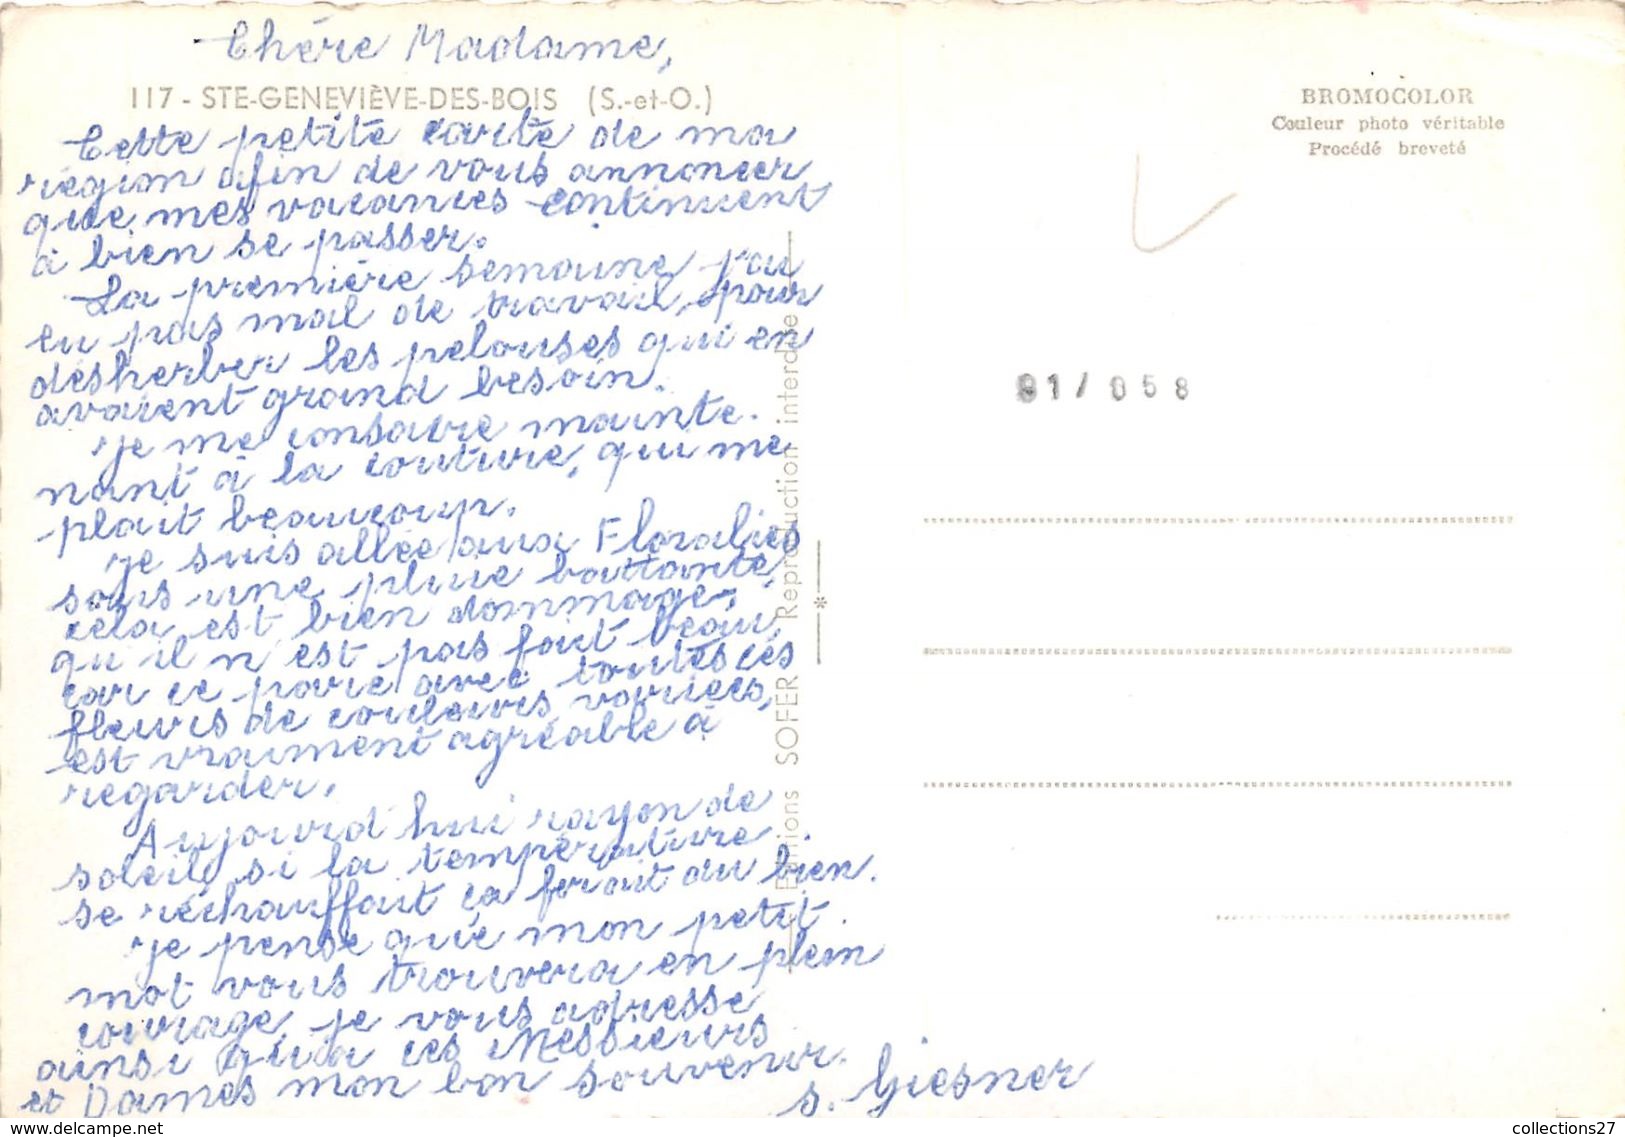 Chére Madame,
117 - STE-GENEVIÈVE-DES-BOIS (S.-et-O.)
Cette petite carte de ma
région afin de vous annoncer
que mes vacances continuent
à bien se passer.
La première semaine j'ai
eu pas mal de travail, pour
désherber les pelouses qui en
avaient grand besoin.
Je me consacre mainte-
nant à la couture, qui me
plait beaucoup.
Je suis allée aux Floralies
sous une pluie battante,
cela est bien dommage,
qu'il n'est pas fait beau,
car ce parc avec toutes ces
fleurs de couleurs variées,
est vraiment agréable à
regarder.
Aujourd'hui rayon de
soleil, si la température
se réchauffait ça ferait du bien.
Je pense que mon petit
mot vous trouvera en plein
courage, je vous adresse
ainsi qu'à ces Messieurs
et Dames mon bon souvenir.
S. Giesner
Editions SOFER Reproduction interdite
BROMOCOLOR
Couleur photo véritable
Procédé breveté
91/058
collections27